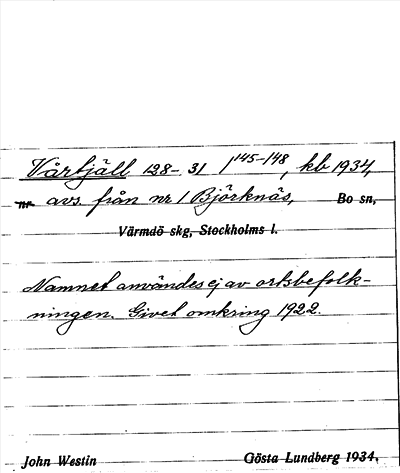 Vårbjäll 128-31 1 145-148, kb 1934,
nr avs. från nr 1 Björknäs, Bo sn,
Värmdö skg, Stockholms l.
Namnet användes ej av ortsbefolk-
ningen. Givet omkring 1922.
John Westin Gösta Lundberg 1934.